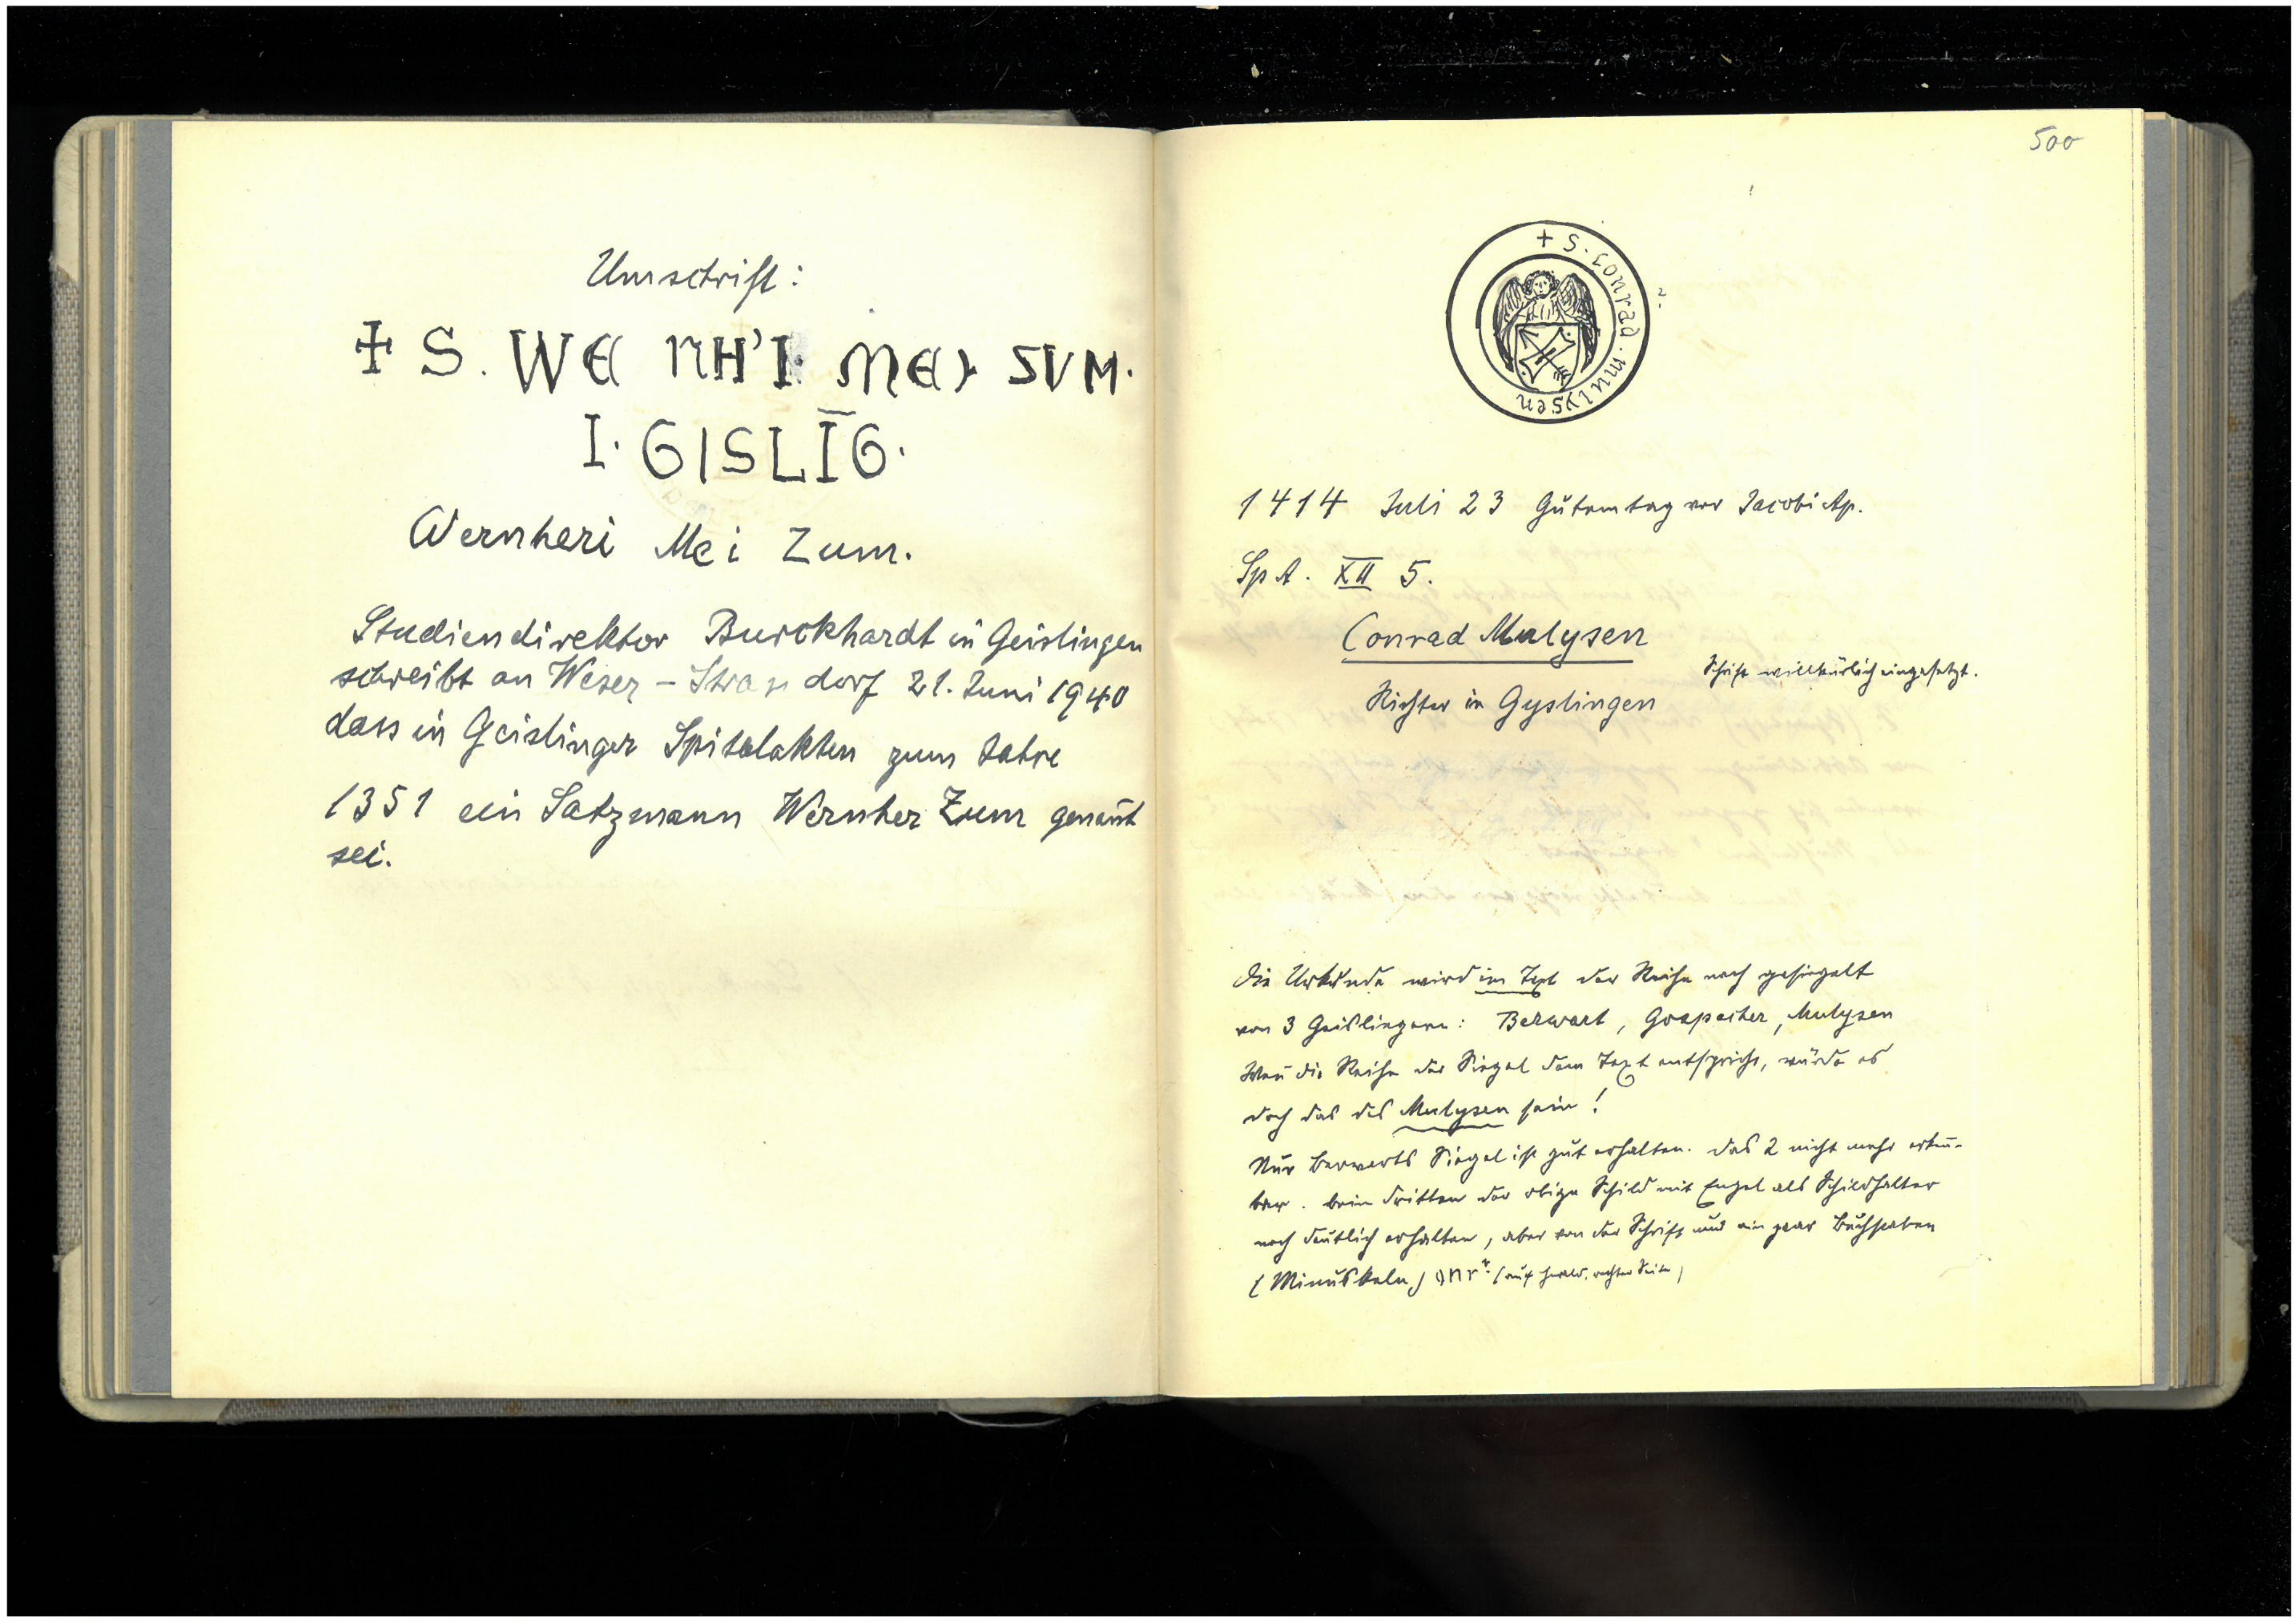 Umschrift:
+ S. WE NH'I· MEI SVM.
I. GISLĪG.
Wernheri Mei Zum.
Studiendirektor Burckhardt in Geislingen
schreibt an Weser - dorf 21. Juni 1940
dass in Geislinger Spitalakten zum Jahre
1351 ein Satzmann Wernher Zum genañt
sei.
500
+ S. conrad. mulysen
?
1414 Juli 23 Gutemtag vor Jacobi Ap.
Sp A. XII 5.
Conrad Mulysen
Schrift willkürlich eingesetzt.
Richter in Gyslingen
Die Urkunde wird im Text der Reihe nach gesiegelt
von 3 Geislingern: Berwart, Gospacher, Mulysen
Weñ die Reihe der Siegel dem Text entspricht, würde es
doch das des Mulysen sein!
Nur Berwarts Siegel ist gut erhalten. Das 2 nicht mehr erkeñ-
bar. Beim dritten der obige Schild mit Engel als Schildhalter
noch deutlich erhalten, aber von der Schrift nur ein paar Buchstaben
(Minuskeln) onr ? (auf rechter Seite)